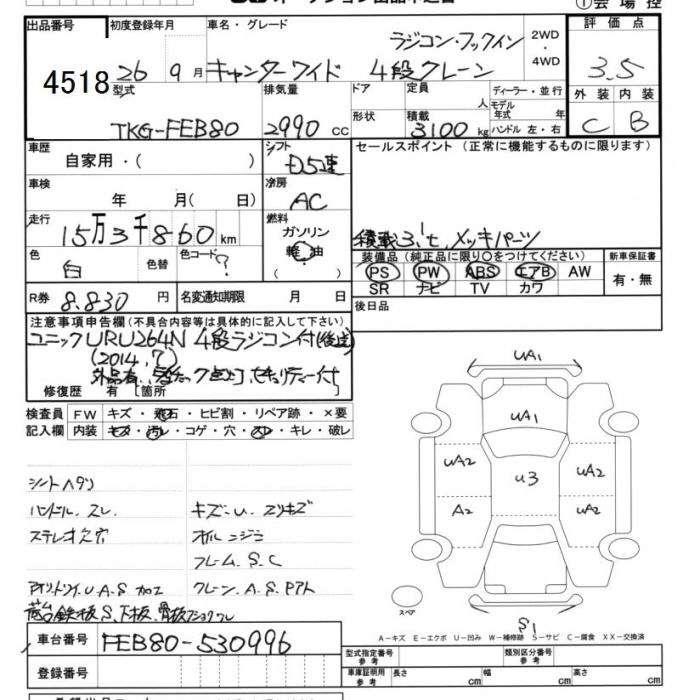 ① 会 場 控
出品番号
4518
初度登録年月
26 9月
車名・グレード
ラジコン・フックイン
キャンターワイド 4段クレーン
2WD
・
4WD
評 価 点
3.5
外 装 内 装
C B
型式
TKG-FEB80
排気量
2990 CC
ドア
形状
定員
人
積載
3100 kg
ディーラー・並行
モデル
年式 年
ハンドル 左・右
車歴
自家用・( )
シフト
D5速
セールスポイント (正常に機能するものに限ります)
積載3.1t, メッキパーツ
車検
年 月( 日)
冷房
AC
走行
15万3千860 km
燃料
ガソリン
軽 油
( )
色
白
色替
色コード
?
装備品 (純正品に限り〇をつけてください)
PS PW ABS エアB AW
SR ナビ TV カワ
新車保証書
有・無
R券
8.830 円
名変通知期限
月 日
後日品
注意事項申告欄(不具合内容等は具体的に記入して下さい)
ユニックURU264N 4段ラジコン付
(2014.7)
修復歴 有 [箇所
検査員
記入欄
FW キズ・飛石・ヒビ割・リペア跡・×要
内装 キズ・汚レ・コゲ・穴・スレ・キレ・破レ
シートヘタリ
ハンドル、スレ
ステレオ欠品
キズ・U. スリキズ
オイルニジミ
フレーム S.C
クレーン. A.S.
UA1
UA1
UA2
UA2
U3
A2
UA2
S1
スペア
A－キズ E－エクボ U－凹み W－補修跡 S－サビ C－腐食 XX－交換済
車台番号
FEB80-530996
登録番号
型式指定番号
参 考
類別区分番号
参 考
車庫証明用
参 考
長さ cm
幅 cm
高さ cm